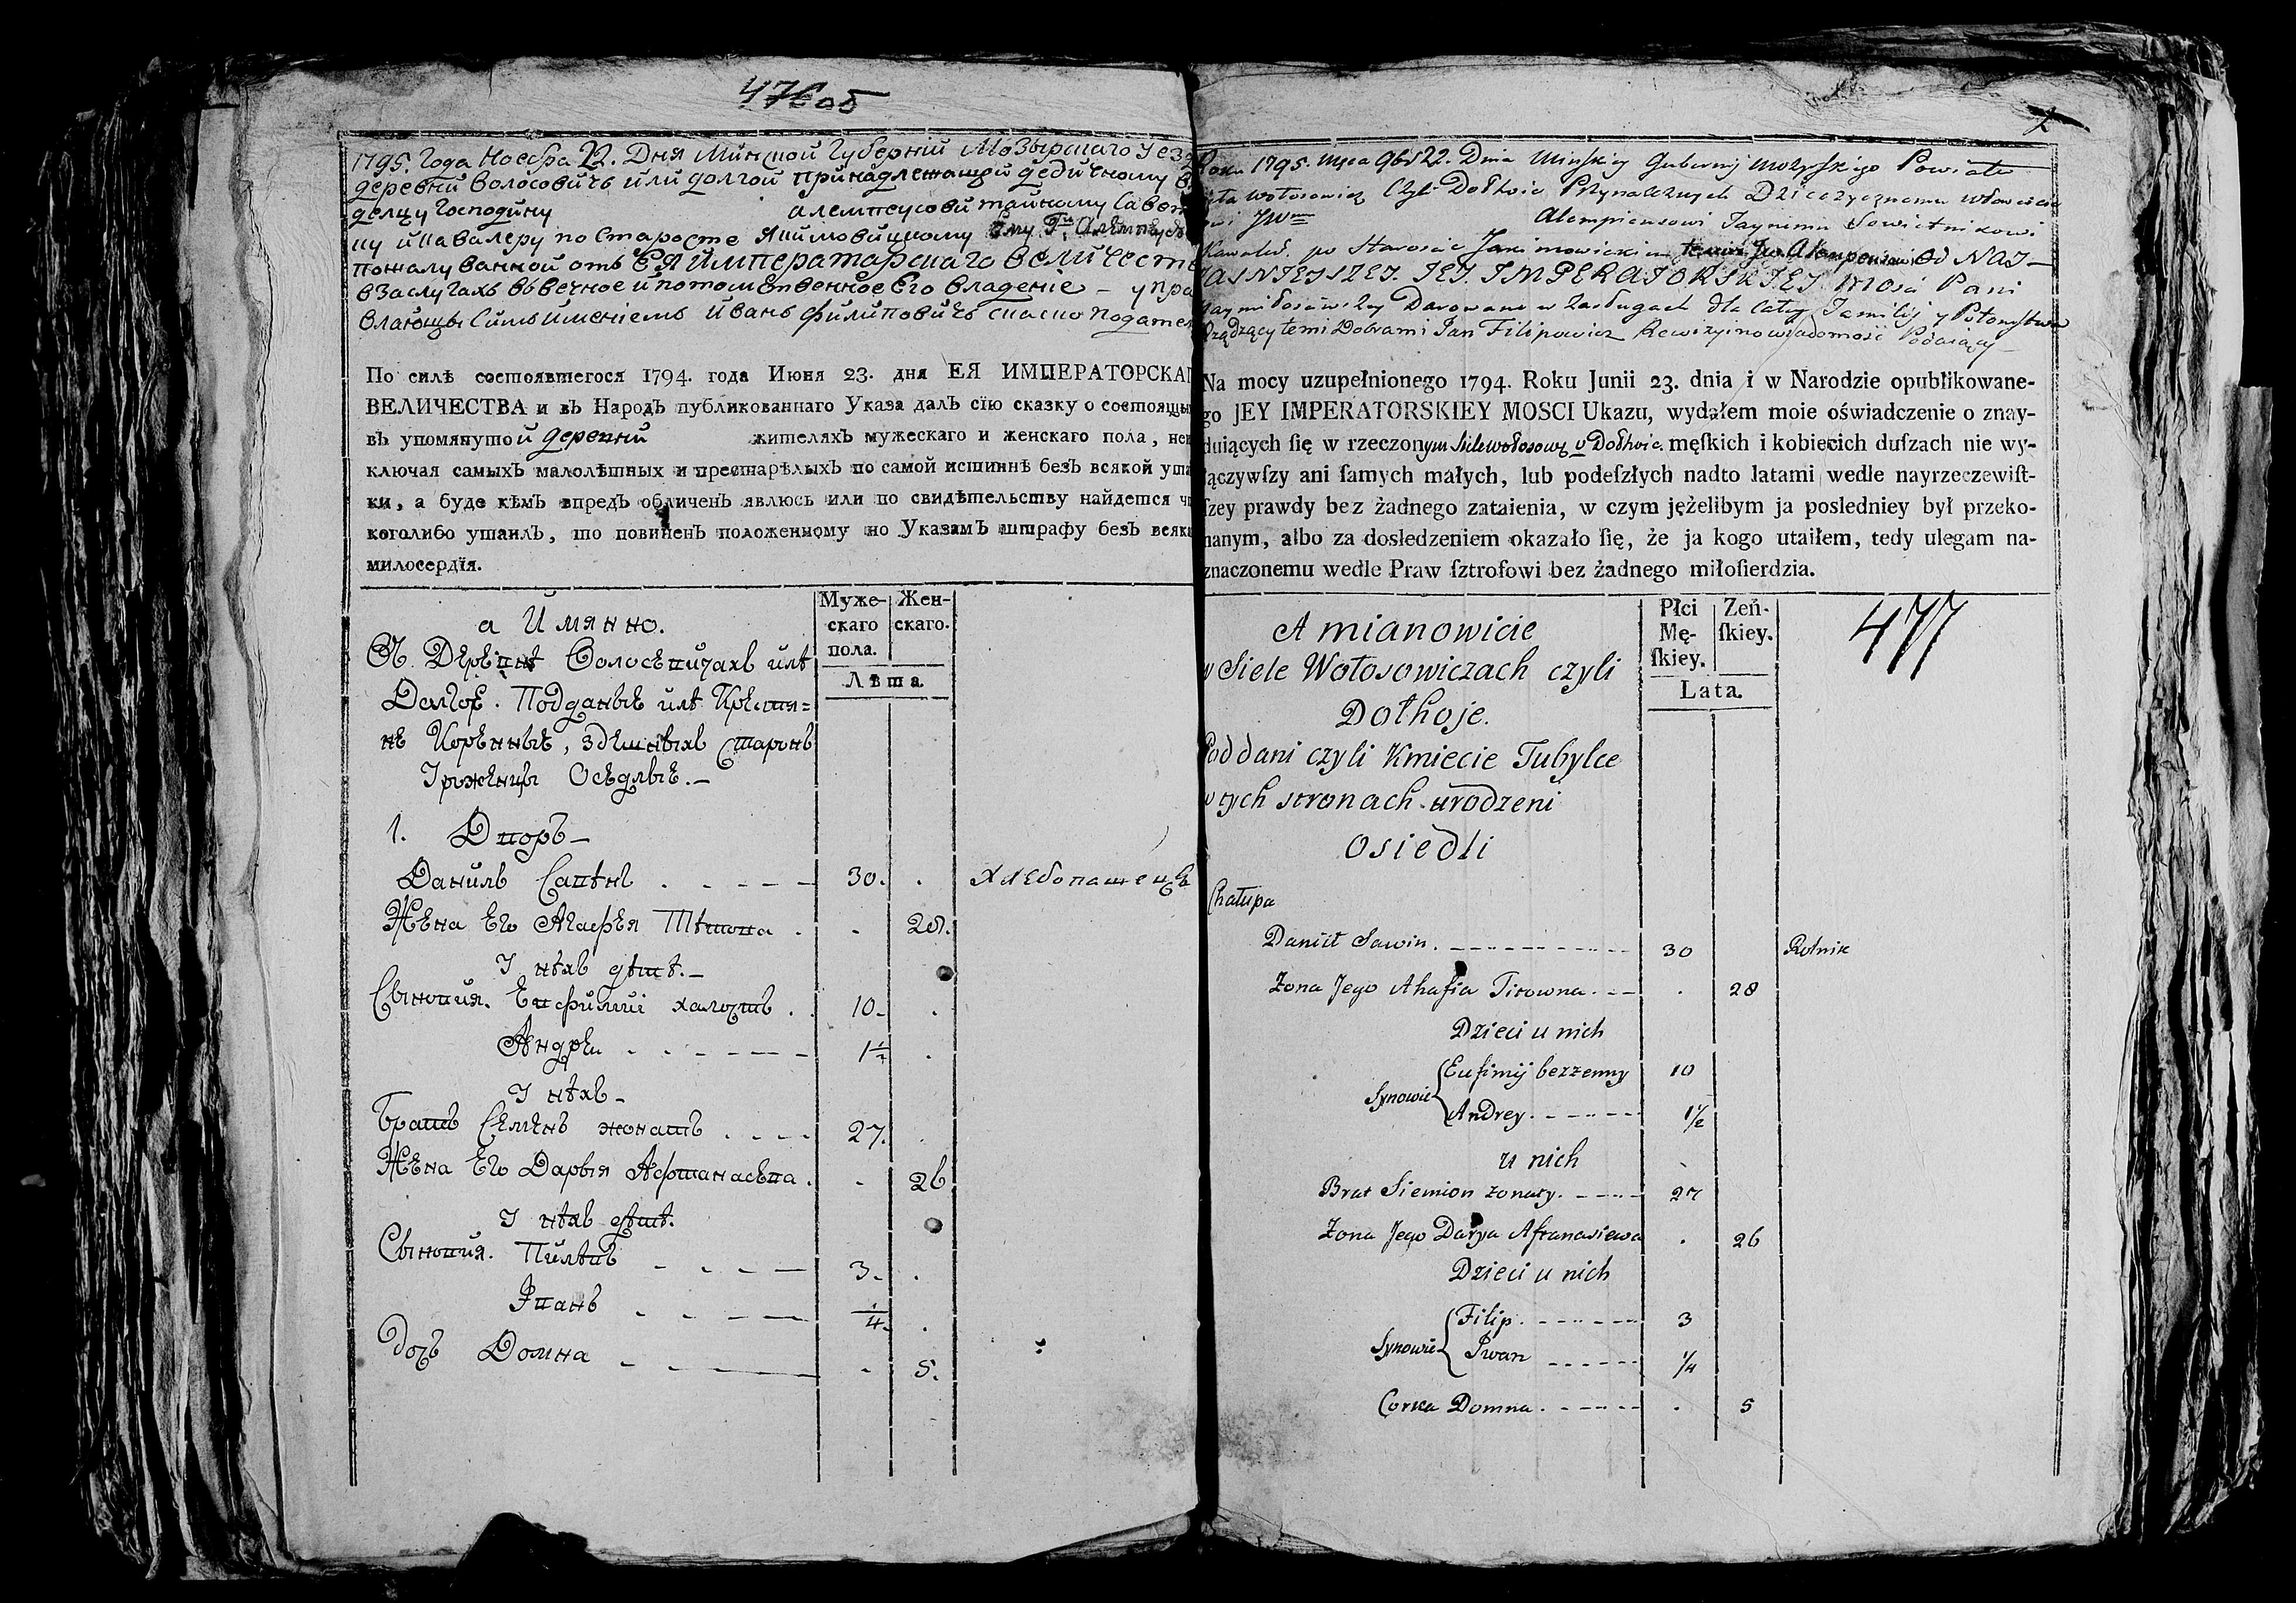 476 об
1795. Года Ноебра 22. Дня Минской Губерніи Мозырскаго Уез
деревни Волосовичъ или долгой принадлежащей дедичному в
делцу Господину алемпеусови тайному Савет
ку и кавалеру по Старосте Якимовицкому
пожалу ванной отъ ЕЯ Императарскаго величест
взаслугахъ въвечное и потомственное Его владеніе – упра
влающы симъ именіемъ Иванъ Филиповичъ
По силѣ состоявшегося 1794. года Іюня 23. дня ЕЯ ИМПЕРАТОРСКАГ
ВЕЛИЧЕСТВА и въ Народъ публикованнаго Указа далъ сїю сказку о состоящи
въ упомянутой деревни жителяхъ мужескаго и женскаго пола, неи
ключая самыхъ малолѣтныхъ и престарѣлыхъ по самой истиннѣ безъ всякой ута
ки, а буде кѣмъ впредъ обличенъ явлюсь или по свидѣтельству найдется чт
коголибо утаилъ, то повиненъ положенному по Указамъ штрафу безъ всяка
милосердїя.
а Имянно.
Муже-
скаго
пола.
Жен-
скаго.
Лѣта
В Деревнѣ Волосевичахъ илѣ
Долгое. Подданые илѣ Крестя=
не Коренные, здешныхъ старонъ
Уроженцы Оседлые.–
1. Дворъ–
Данилъ Савѣнъ 30. Хлебопашецъ
Жена Его Агафея Тѣтова 28.
У нѣхъ дѣтѣ.–
Сыновия. Евфимиі халостъ 10.
Андреи 1 1/2
У нѣхъ–
Братъ Семенъ жонатъ 27.
Жена Его Дарья Афтанасева 26
У нѣхъ дѣтѣ.
Сыновия. Пилѣпъ 3.
Іванъ 1/4.
дочъ Домна 5.
Roku 1795. Mca 9br 22. Dnia Minskiey Gubernij Mozyrskiego Powiatu
Sioła Wołosowicz Czyli Dołhoie Przynależnych Dziedzycznemu włascicie
lowi JWmu Alempieusowi Taynemu Sowietnikowi
Kawaler. po Staroscie Jakimowickim od NAJ-
JASNIEJSZEJ. JEJ. IMPERATORSKIEJ Mosci Pani
Naymiłosciwszey Darowane w zasługach dla całey Familij y Potomstwa
Rządzący temi Dobrami Jan Filipowicz Rewizyino wiadomość Podaiący
Na mocy uzupełnionego 1794. Roku Junii 23. dnia i w Narodzie opublikowane-
go JEY IMPERATORSKIEY MOSCI Ukazu, wydałem moie oświadczenie o znay-
duiących ſię w rzeczonym Siele Wołosowcz y Dołhoie. męſkich i kobiecich duſzach nie wy-
łączywſzy ani ſamych małych, lub podeſzłych nadto latami wedle nayrzeczewiſt-
ſzey prawdy bez żadnego zataienia, w czym jężelibym ja posledniey był przeko-
nanym, albo za dosledzeniem okazało ſię, że ja kogo utaiłem, tedy ulegam na-
znaczonemu wedle Praw ſztrofowi bez żadnego miłoſierdzia.
A mianowicie
Płci
Mę-
ſkiey.
Zeń-
ſkiey.
Lata.
477
w Siele Wołosowiczach czyli
Dołhoje.
Poddani czyli Kmiecie Tubylce
w tych stronach urodzeni
Osiedli
Chałupa
Daniił Sawin. 30 Rolnik
Żona Jego Ahafia Titowna 28
Dzieci u nich
Synowie Eufimij bezżenny 10
Andrey 1 1/2
u nich
Brat Siemion żonaty. 27
Żona Jego Darya Aftanasiewa 26
Dzieci u nich
Synowie Filip. 3
Jwan 1/4
Corka Domna. 5